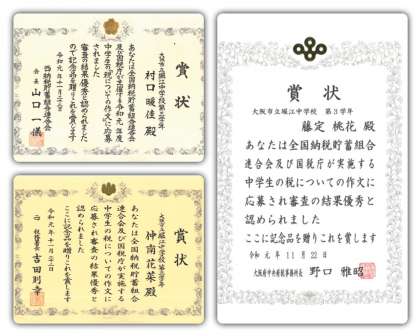 賞状
大阪市立堀江中学校第三学年
村口暖佳 殿
あなたは全国納税貯蓄組合連合会
及び国税庁が実施する令和元年度
中学生の「税についての作文」に応募
されました
審査の結果優秀と認められました
ので記念品を贈りこれを賞します
会長 山口一
賞状
神南花菜殿
あなたは全国納税貯蓄組合
連合会及び国税庁が実施する
中学生の税についての作文に
応募され審査の結果優秀と
認められました
ここに記念品を贈りこれを賞します
令和元年十一月
西税務署長
吉田則幸
賞状
大阪市立堀江中学校 第3学年
藤定 桃花 殿
あなたは全国納税貯蓄組合
連合会及び国税庁が実施する
中学生の税についての作文に
応募され審査の結果優秀
と認められました
ここに記念品を贈りこれを賞します
令和元年11月22日
大阪府中央府税事務所長 野口 雅昭